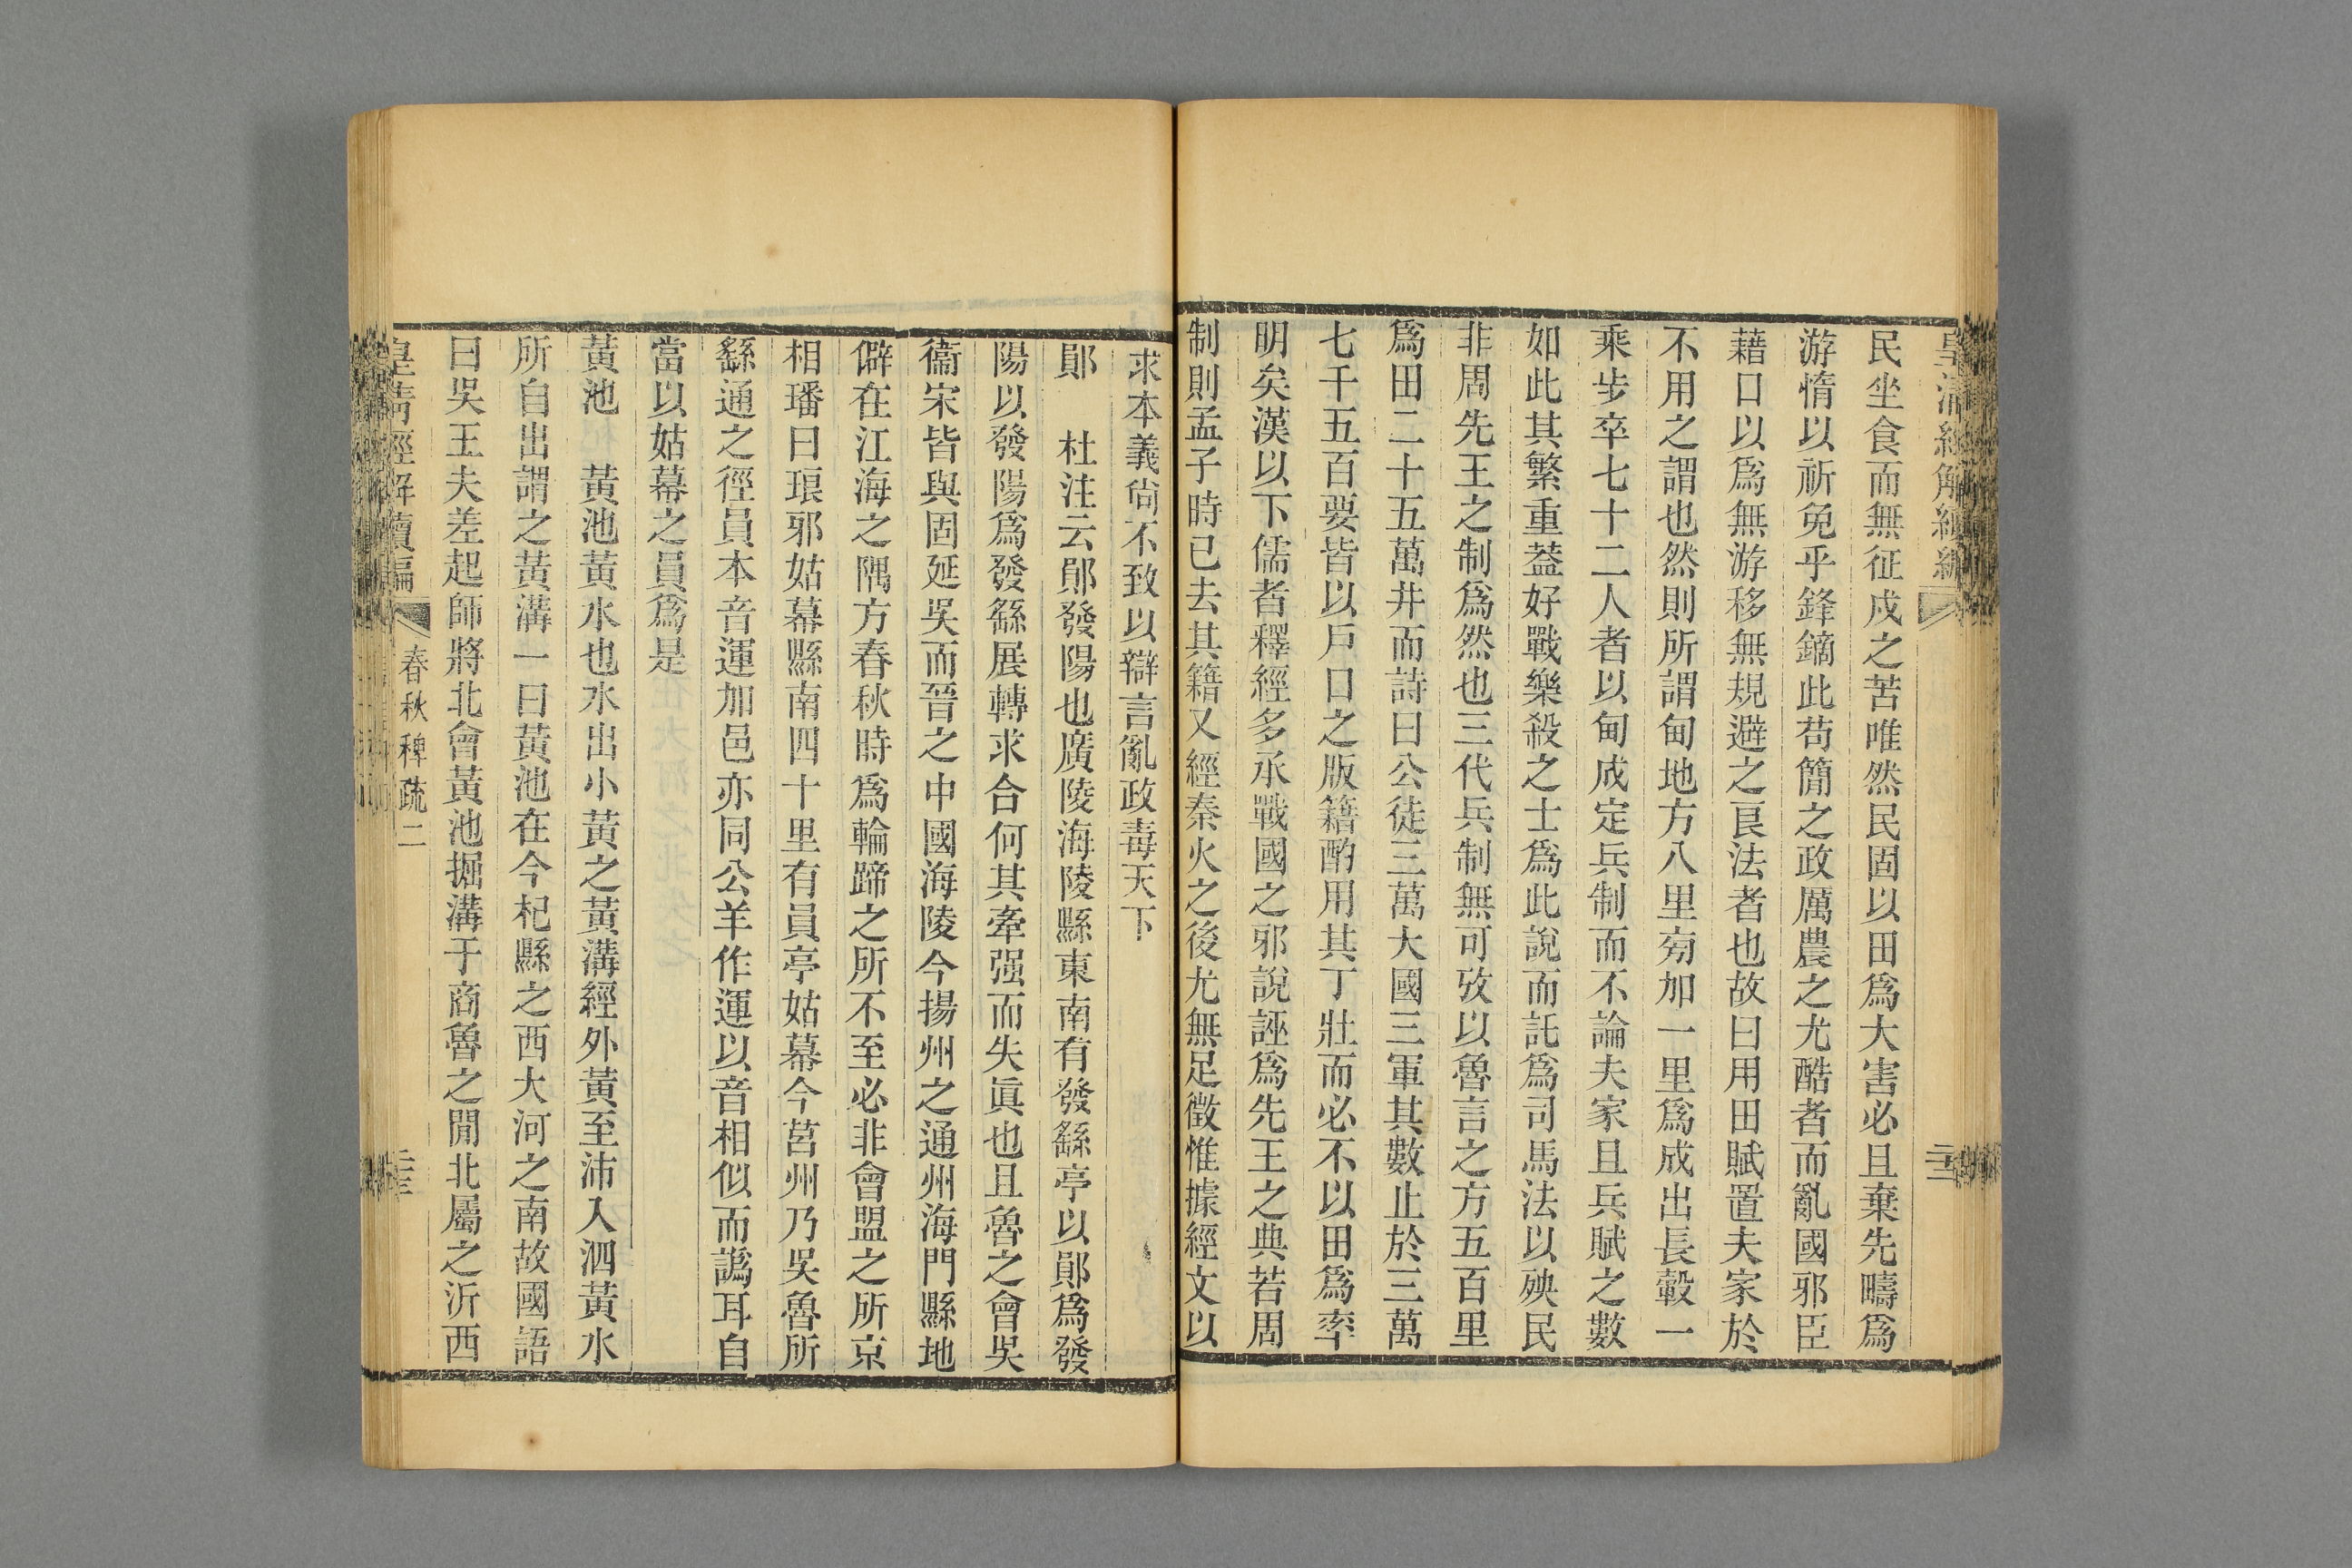 民坐食而無征戍之苦唯然民固以田爲大害必且棄先疇爲
游惰以祈免乎鋒鏑此苟簡之政厲農之尤酷者而亂國邪臣
藉口以爲無游移無規避之良法者也故曰用田賦置夫家於
不用之謂也然則所謂甸地方八里旁加一里爲成出長轂一
乘步卒七十二人者以甸成定兵制而不論夫家且兵賦之數
如此其繁重葢好戰樂殺之士爲此說而託爲司馬法以殃民
非周先王之制爲然也三代兵制無可攷以魯言之方五百里
爲田二十五萬井而詩曰公徒三萬大國三軍其數止於三萬
七千五百要皆以戶口之版籍酌用其丁壯而必不以田爲率
明矣漢以下儒者釋經多承戰國之邪說誣爲先王之典若周
制則孟子時已去其籍又經秦火之後尤無足徵惟據經文以
求本義尙不致以辯言亂政毒天下
鄖　杜注云鄖發陽也廣陵海陵縣東南有發繇亭以鄖爲發
陽以發陽爲發繇展轉求合何其牽强而失眞也且魯之會吳
衞宋皆與固延吳而晉之中國海陵今揚州之通州海門縣地
僻在江海之隅方春秋時爲輪蹄之所不至必非會盟之所京
相璠曰琅邪姑幕縣南四十里有員亭姑幕今莒州乃吳魯所
繇通之徑員本音運加邑亦同公羊作運以音相似而譌耳自
當以姑幕之員爲是
黃池　黃池黃水也水出小黃之黃溝經外黃至沛入泗黃水
所自出謂之黃溝一曰黃池在今杞縣之西大河之南故國語
曰吳王夫差起師將北會黃池掘溝于商魯之閒北屬之沂西
皇清經解續編　春秋稗疏二